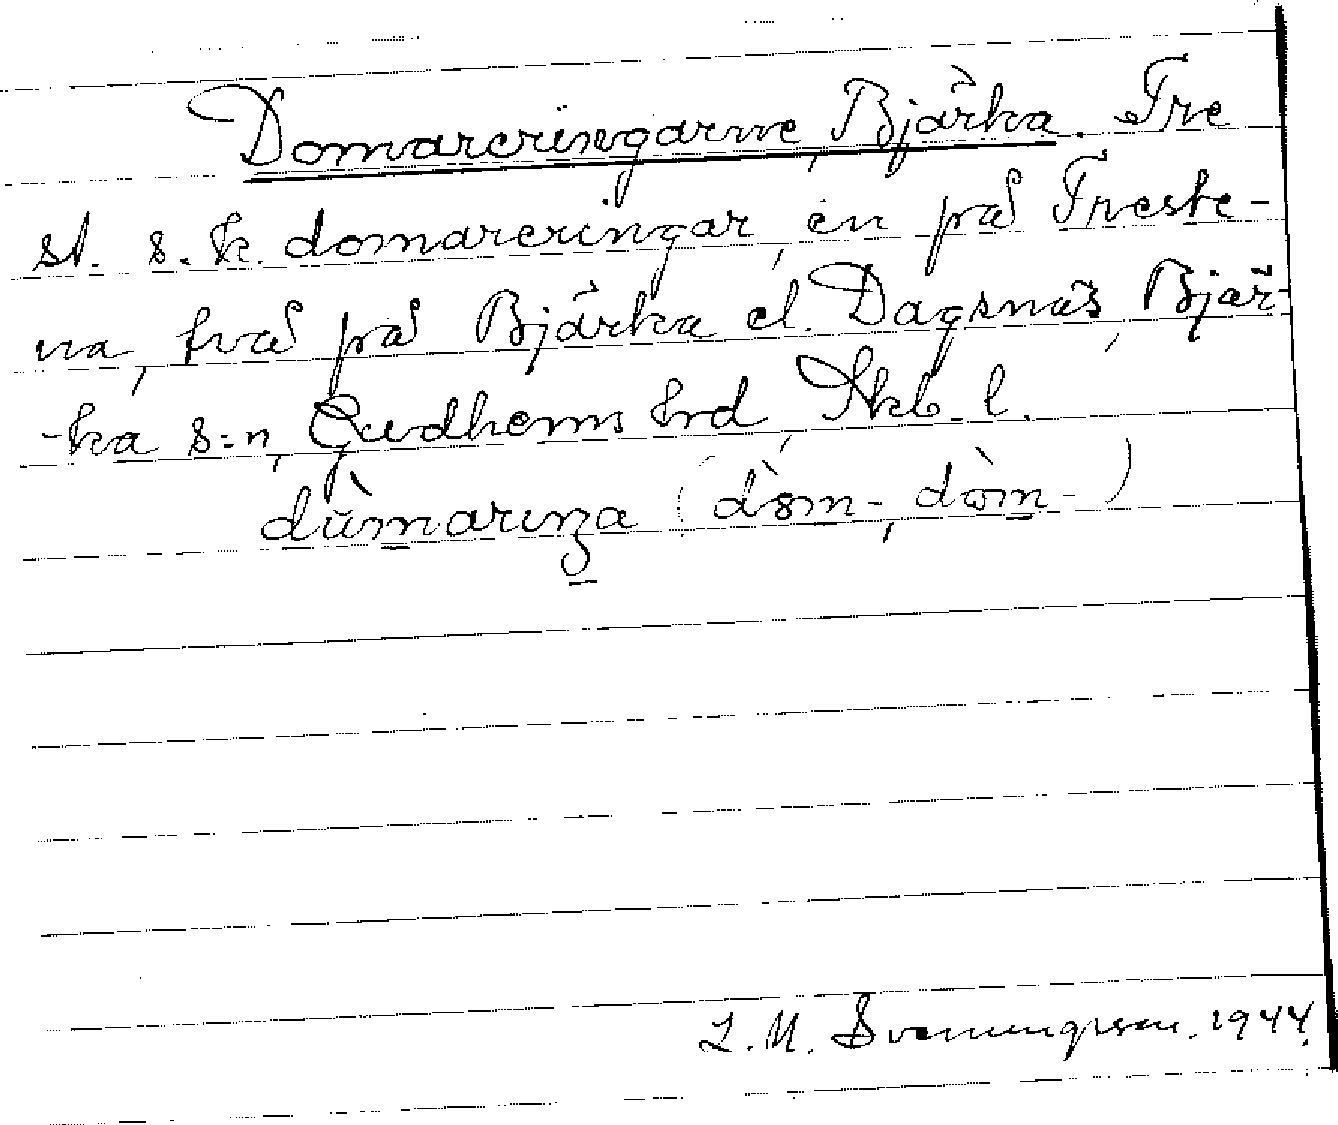 Domareringarne, Bjärka. Tre
st. s.k. domareringar, en på Treste-
na, två på Bjärka el. Dagsnäs, Bjär-
-ka s:n, Gudhems hrd, Skb. l.
L. M. Svenungsson. 1944.